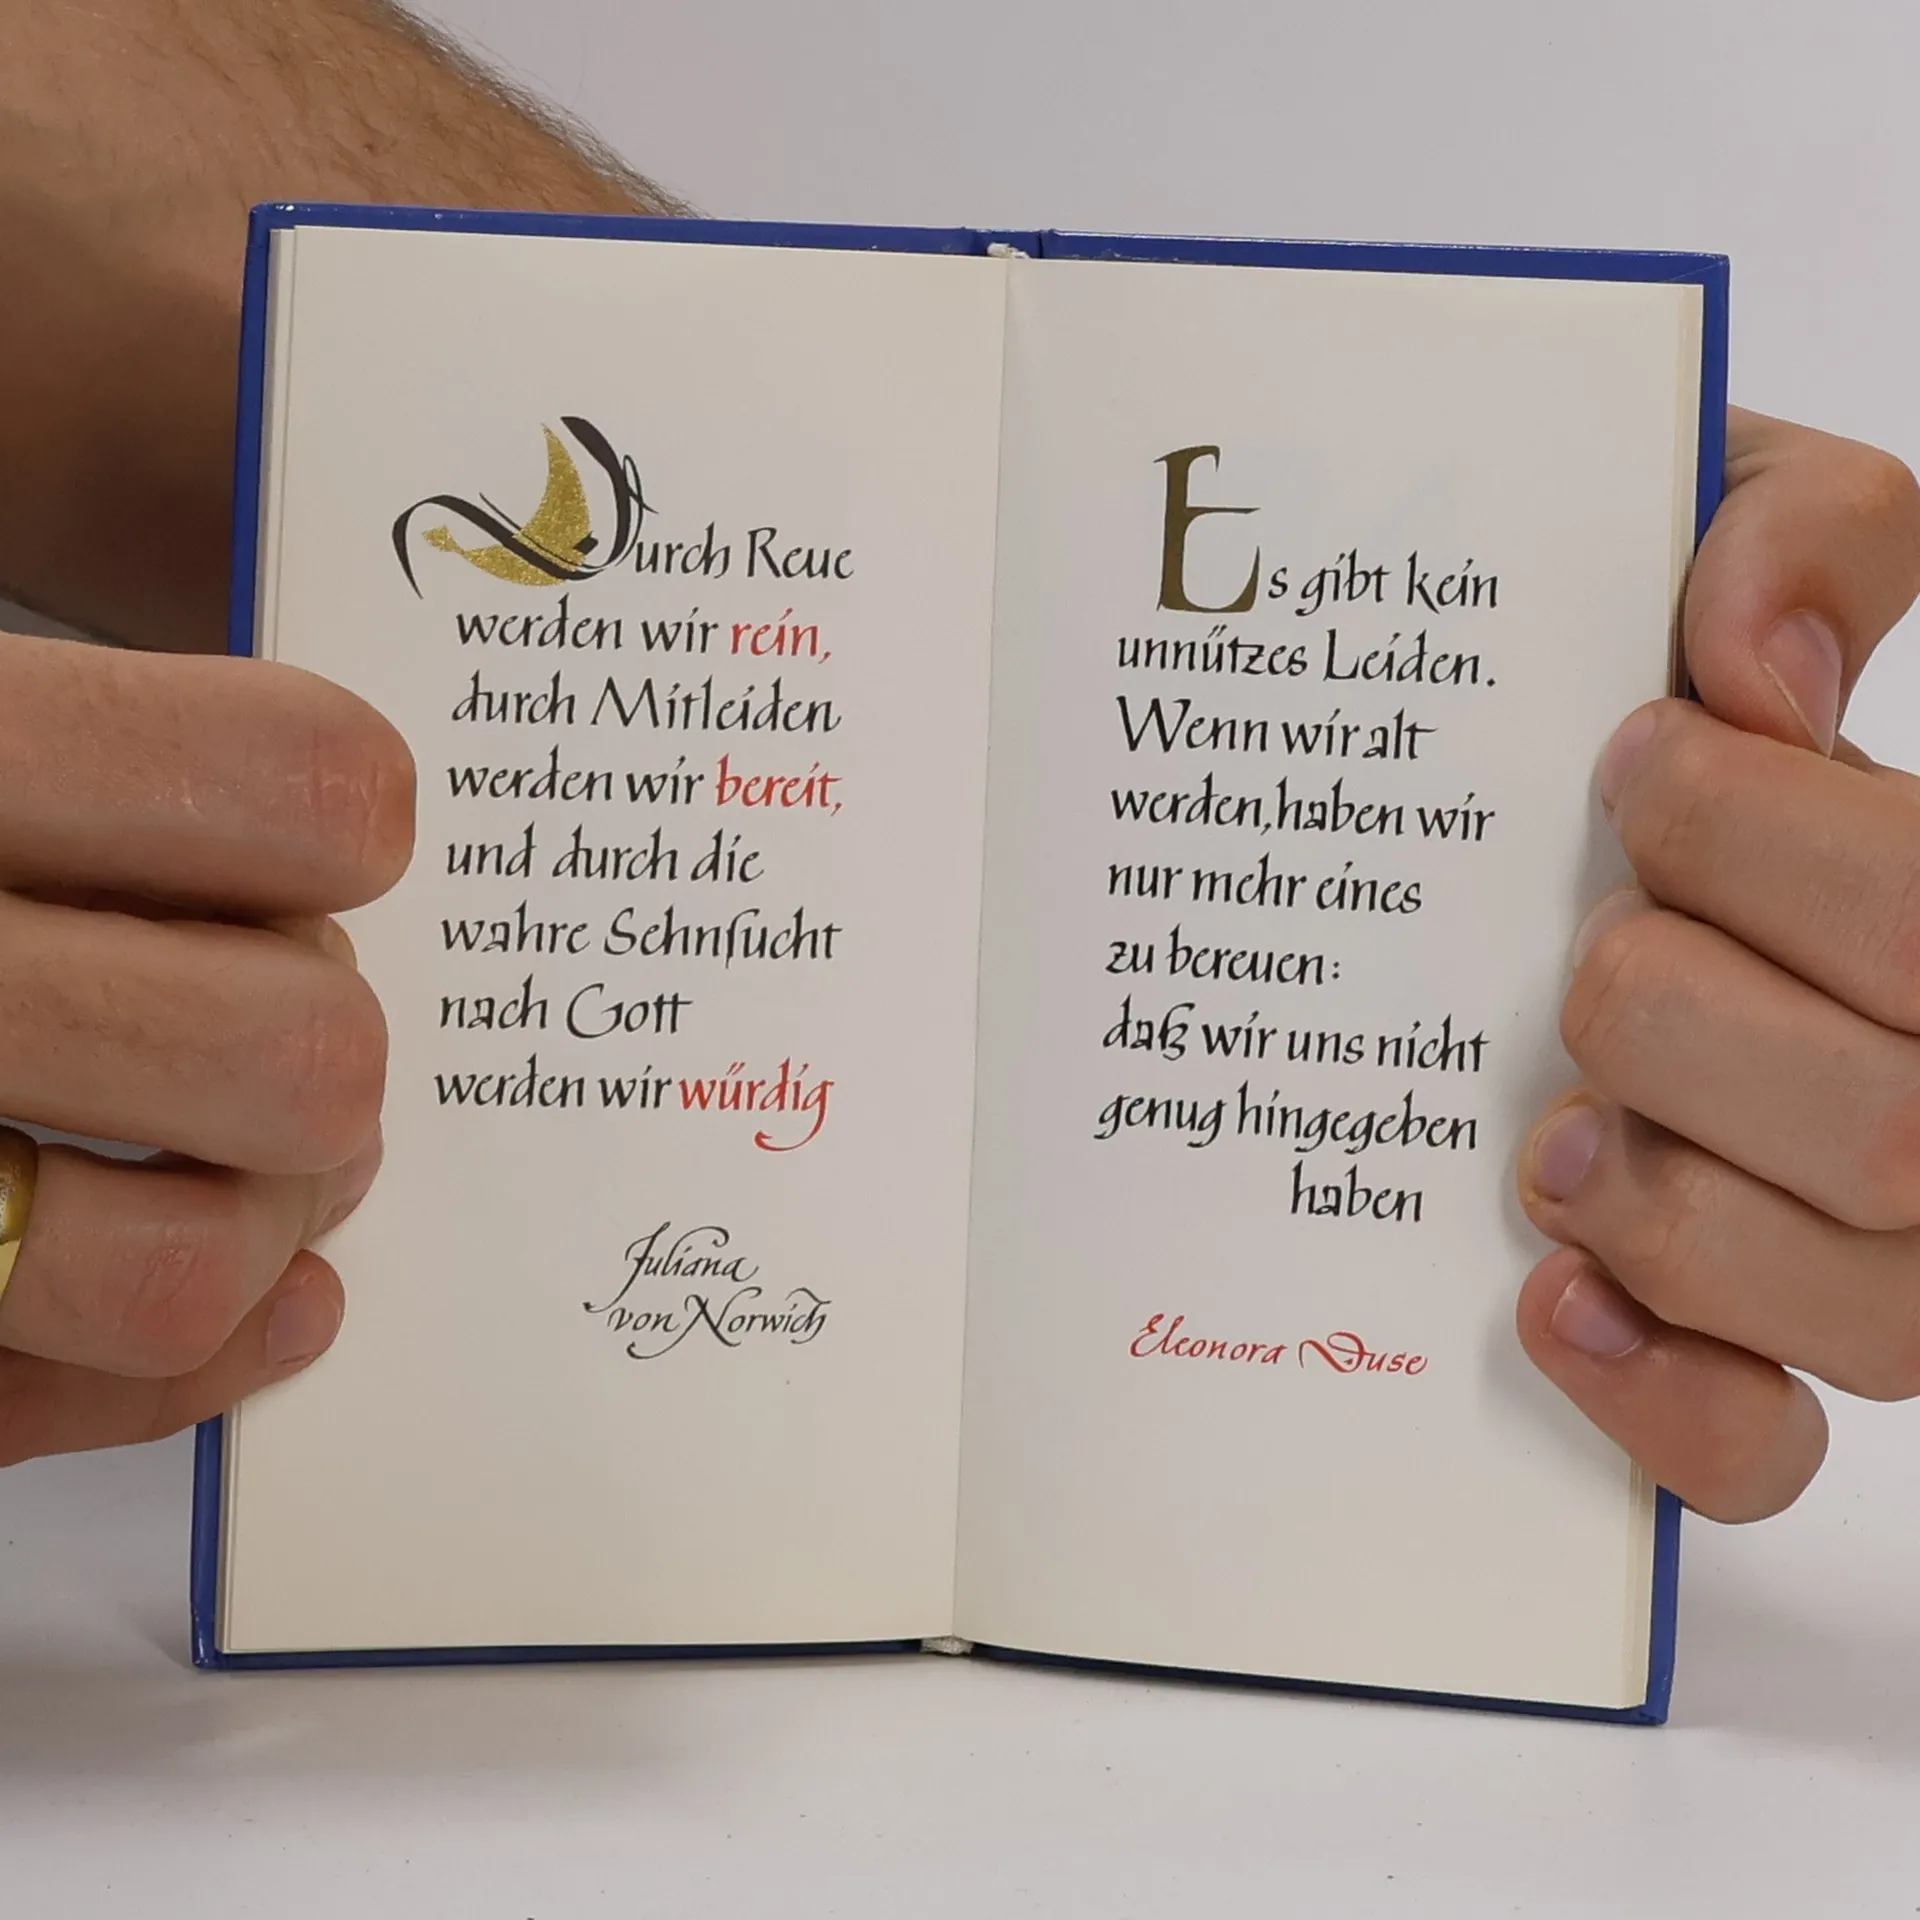 Durch Reue
werden wir rein,
durch Mitleiden
werden wir bereit,
und durch die
wahre Sehnſucht
nach Gott
werden wir würdig
Juliana
von Norwich
Es gibt kein
unnützes Leiden.
Wenn wir alt
werden, haben wir
nur mehr eines
zu bereuen:
daß wir uns nicht
genug hingegeben
haben
Eleonora Duse